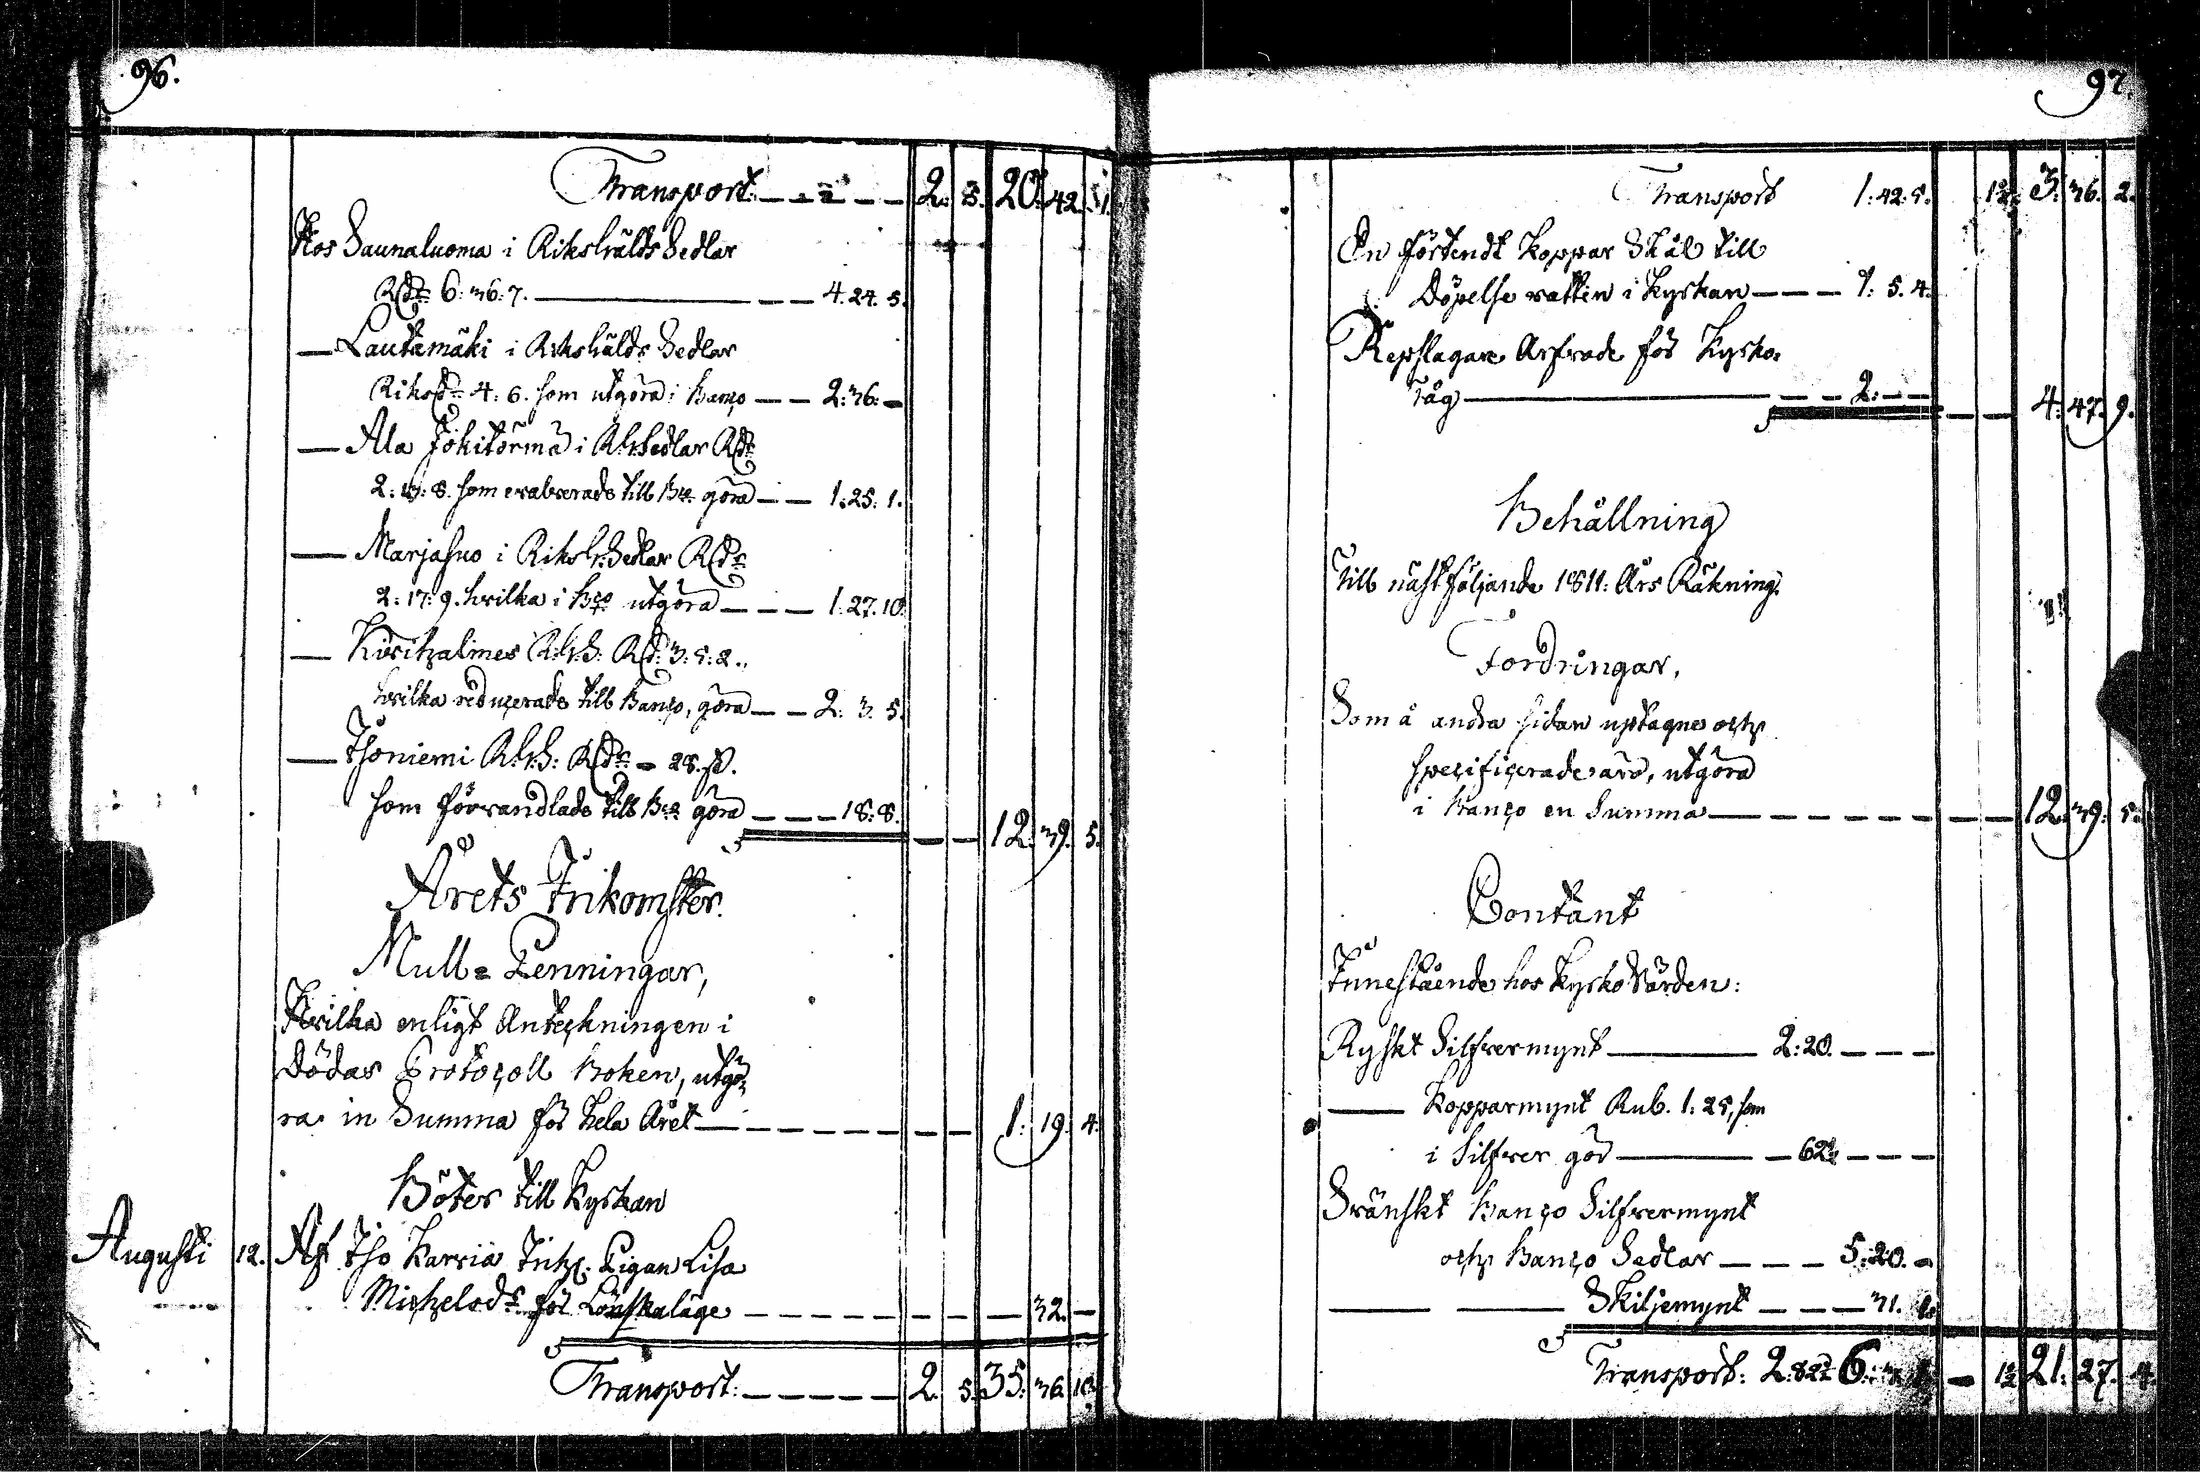 96.
Transport. 2. 5. 20. 42. 1.
Hos Saunaluoma i Riksgälds Sedlar
Rdr 6: 36: 7. 4. 24. 5.
Lautamäki i Riksgälds Sedlar
Riksdr 4: 6. som utgöra i Banco 2: 36: -
Ala Jokitörmä i R.g. Sedlar Rdr
2: 13: 8. som evalverade till Bco göra 1: 25: 1.
Marjasuo i Riksg: Sedlar Rdr
2: 17: 9. hvilka i Bco utgöra 1: 27. 10.
R.g.S. Rd. 3: 5: 2.
hvilka reducerade till Banco, göra 2: 3. 5.
Isoniemi R.g.S: Rdr - 28. s.
som förvandlade till Bco göra 18: 8.
12. 39. 5.
Årets Inkomster.
Mull = Penningar,
Hvilka enligt Anteckningen i
Dödas Protocoll Boken, utgö-
ra in Summa för hela Året 1: 19. 4.
Böter till Kyrkan
Augusti 12. Af Iso Karvia Inh. Pigan Lisa
Michelsdr för Lönskaläge 32. -
Transport: 2. 5. 35. 36. 10.
97.
Transport 1: 42: 5. 12. 3: 36. 2.
En förtendt Koppar Skål till
Döpelse vatten i Kyrkan 1: 5. 4.
Repslagare Arfvode för Kyrko-
Tåg 2: - -
4: 47. 9.
Behållning
Till nästföljande 1811: Års Räkning.
Fordringar,
Som å andra sidan uptagne och
specificerade äro, utgöra
i Banco en Summa 12. 39. 5.
Contant
Innestående hos Kyrko Värden:
Ryskt Silfvermynt 2: 20. - - -
Kopparmynt Rub. 1: 25, som
i Silfver gör - 62½ - - -
Svänskt Banco Silfvermynt
och Banco Sedlar 5: 20. -
Skiljemynt 31.
Transport: 2: 82½ 6: - 12 21: 27. 4.